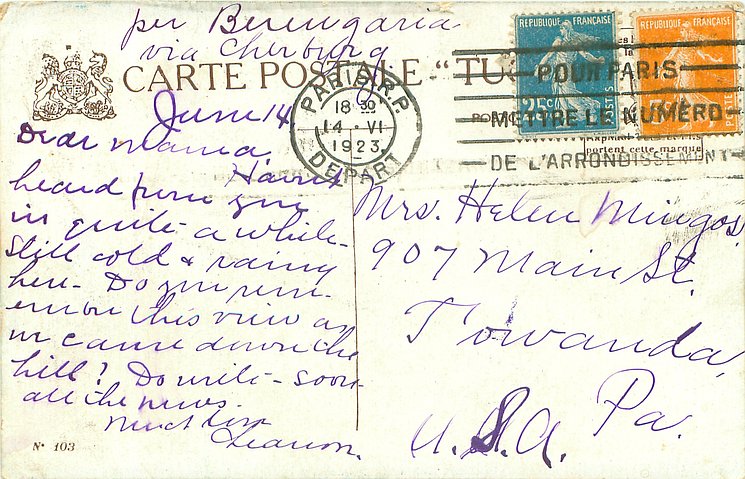 per Berengaria
via Cherburg
CARTE POSTALE "TUC
REPUBLIQUE FRANÇAISE
REPUBLIQUE FRANÇAISE
25c
POSTES
PARIS R.P.
18 30
14 · VI
1923
DEPART
POUR PARIS
METTRE LE NUMERO
DE L'ARRONDISSEMENT
portent cette marque
June 14
Dear mama
Haven't
heard from you
in quite a while -
Still cold & rainy
here - Do you rem-
ember this view as
we came down the
hill? Do write - soon
all the news.
Much love
Mrs. Helen Mingos
907 Main St.
Towanda,
Pa.
U.S.A.
No 103